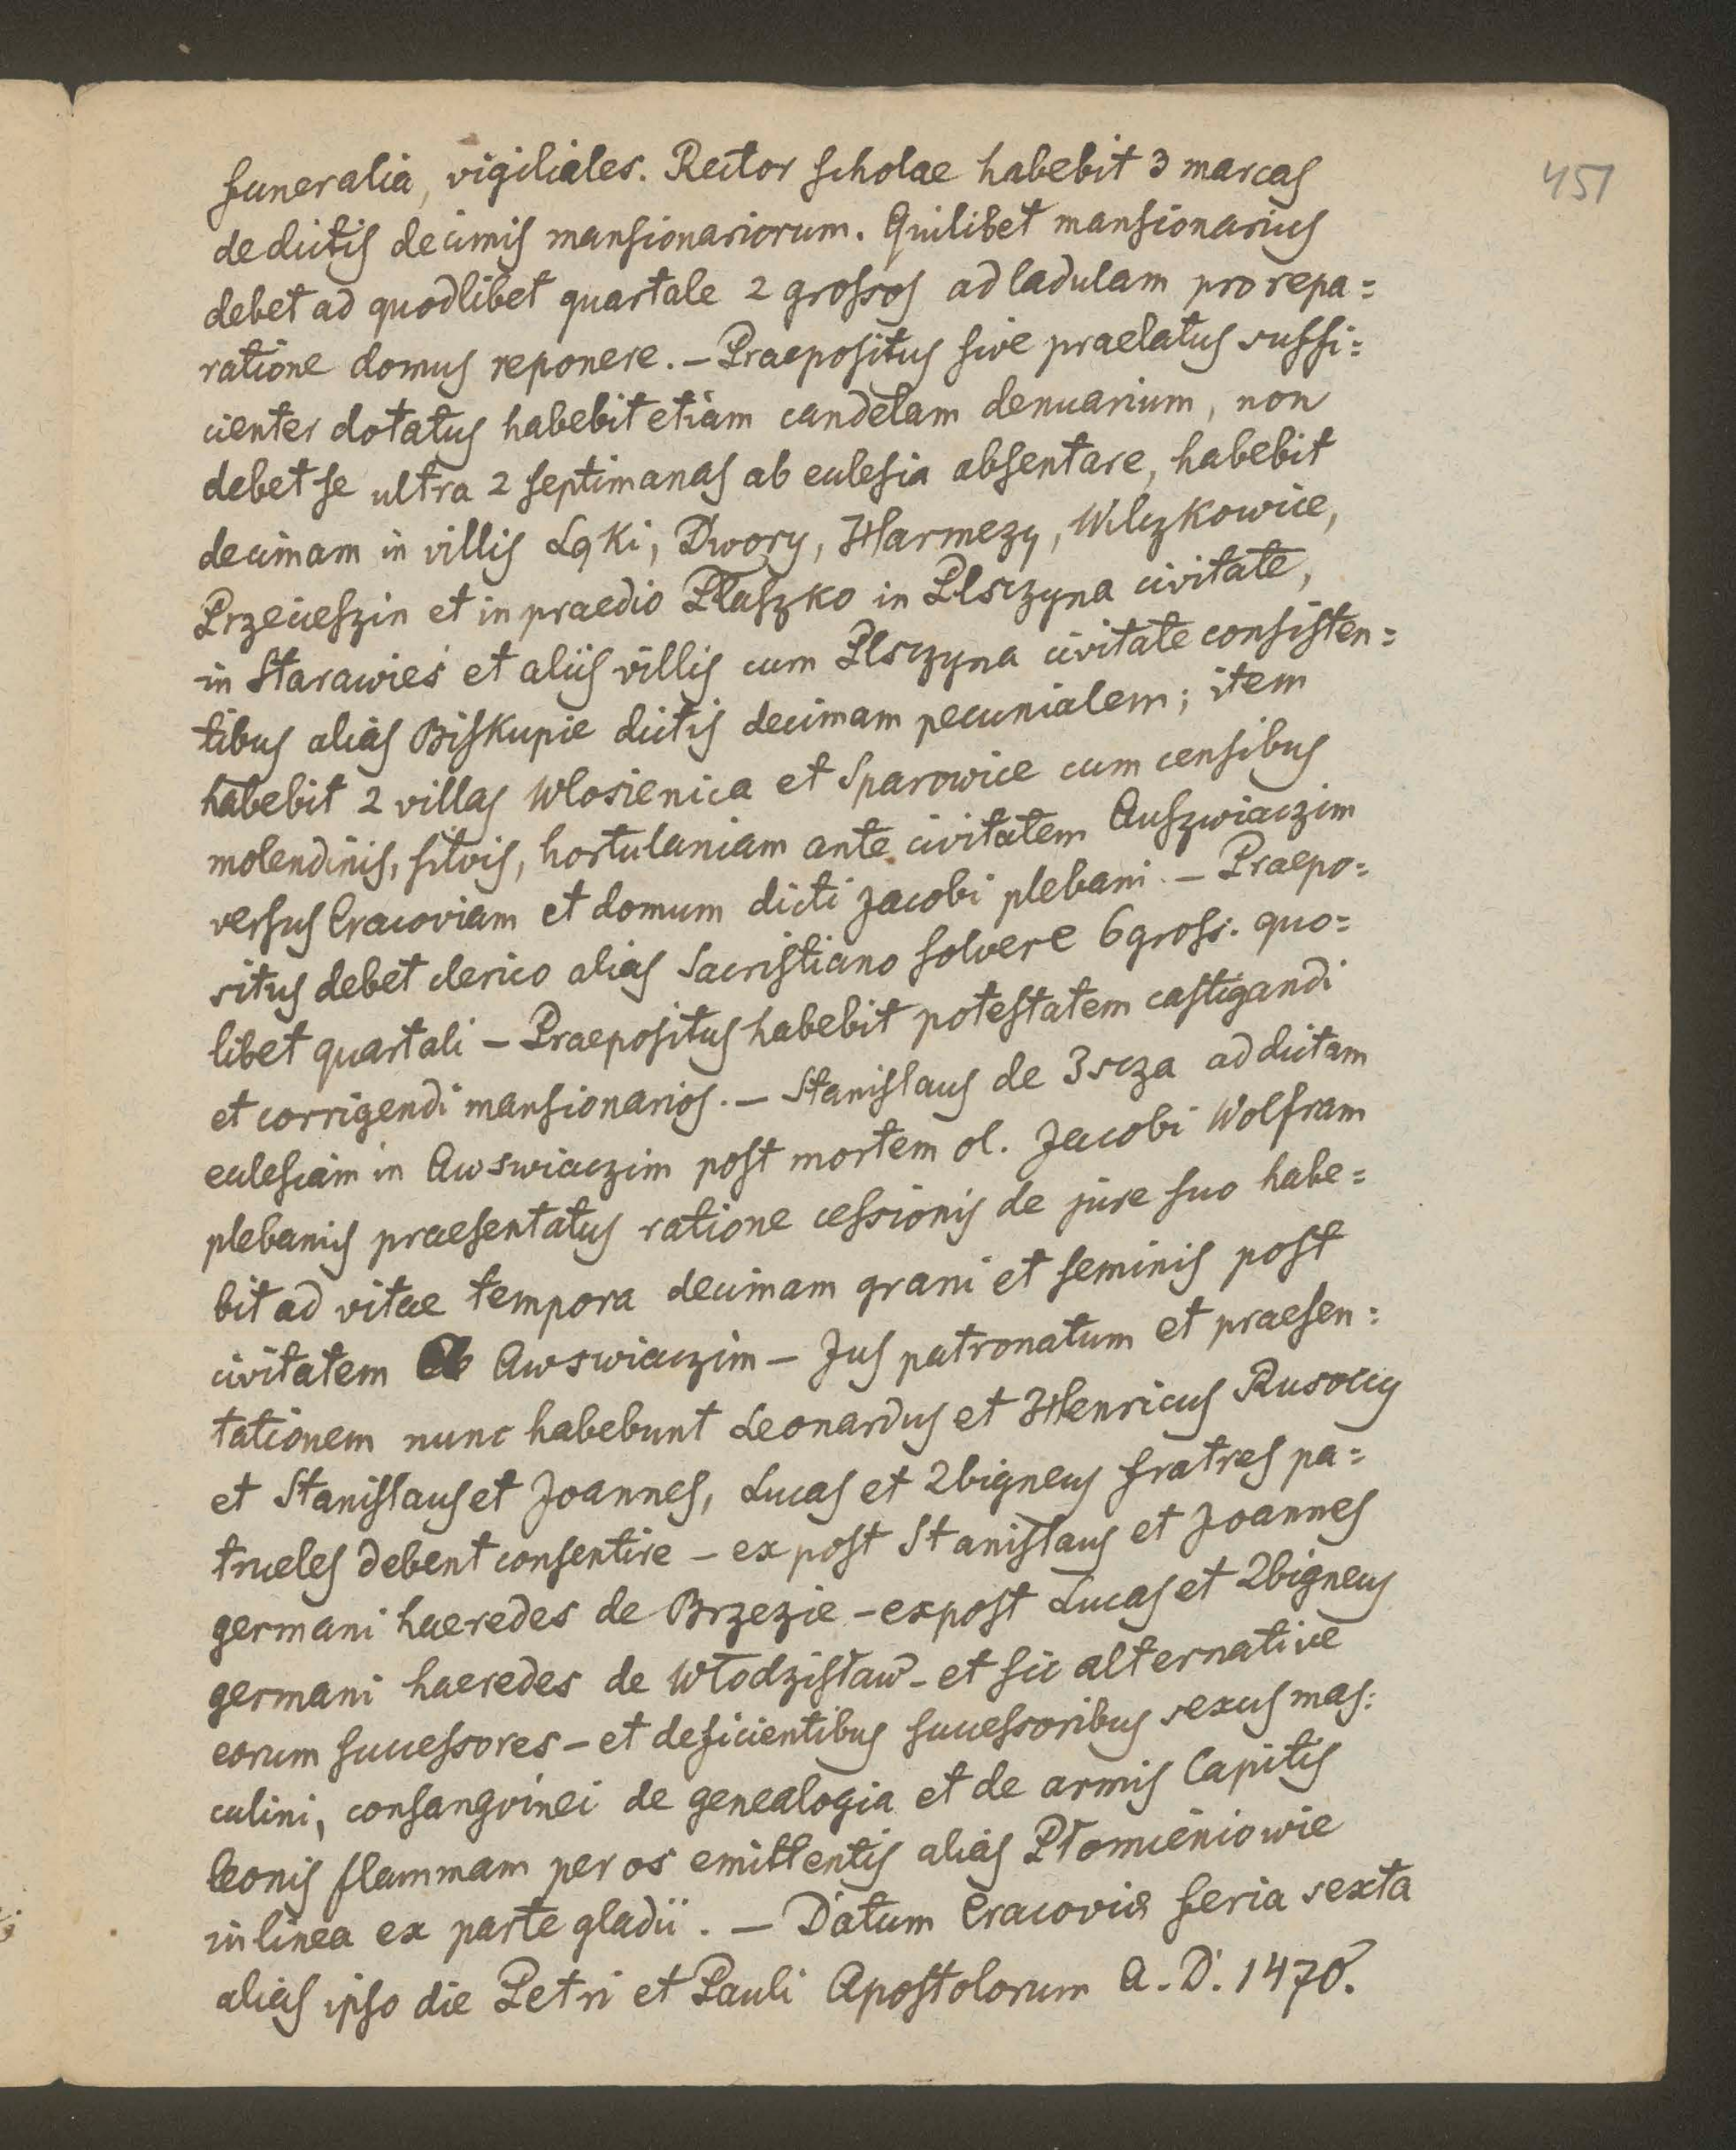 451
funeralia, vigiliales. Rector scholae habebit 3 marcas
de dictis decimis mansionariorum. Quilibet mansionarius
debet ad quodlibet quartale 2 grossos ad ladulam pro repa=
ratione domus reponere. – Praepositus sive praelatus suffi=
cienter dotatus habebit etiam candelam denuarium, non
debet se ultra 2 septimanas ab eclesia absentare, habebit
decimam in villis Łąki, Dwory, Harmezy, Wilczkowice,
Przecieszin et in praedio Płaszko in Plsczyna civitate,
in Starawieś et aliis villis cum Plsczyna civitate consisten=
tibus alias Biskupie dictis decimam pecunialem; item
habebit 2 villas Wlosienica et Sparowice cum censibus
molendinis, silvis, hortulaniam ante civitatem Auszwiaczim
versus Cracoviam et domum dicti Jacobi plebani. – Praepo=
situs debet clerico alias Sacristiano solvere 6 gross. quo=
libet quartali – Praepositus habebit potestatem castigandi
et corrigendi mansionarios. – Stanislaus de 3scza ad dictam
eclesiam in Awswiaczim post mortem ol. Jacobi Wolfram
plebanus praesentatus ratione cessionis de jure suo habe=
bit ad vitae tempora decimam grani et seminis post
civitatem Awswiaczim – Jus patronatum et praesen=
tationem nunc habebunt Leonardus et Henricus Rusoccy
et Stanislaus et Joannes, Lucas et Zbigneus fratres pa=
trueles debent consentire – ex post Stanislaus et Joannes
germani haeredes de Brzezie – expost Lucas et Zbigneus
germani haeredes de Włodzisław – et sic alternative
eorum successores – et deficientibus successoribus sexus mas=
culini, consangvinei de genealogia et de armis Capitis
leonis flammam per os emittentis alias Płomieniowie
in linea ex parte gladii. – Datum Cracovie feria sexta
alias ipso die Petri et Pauli Apostolorum A. D. 1470.